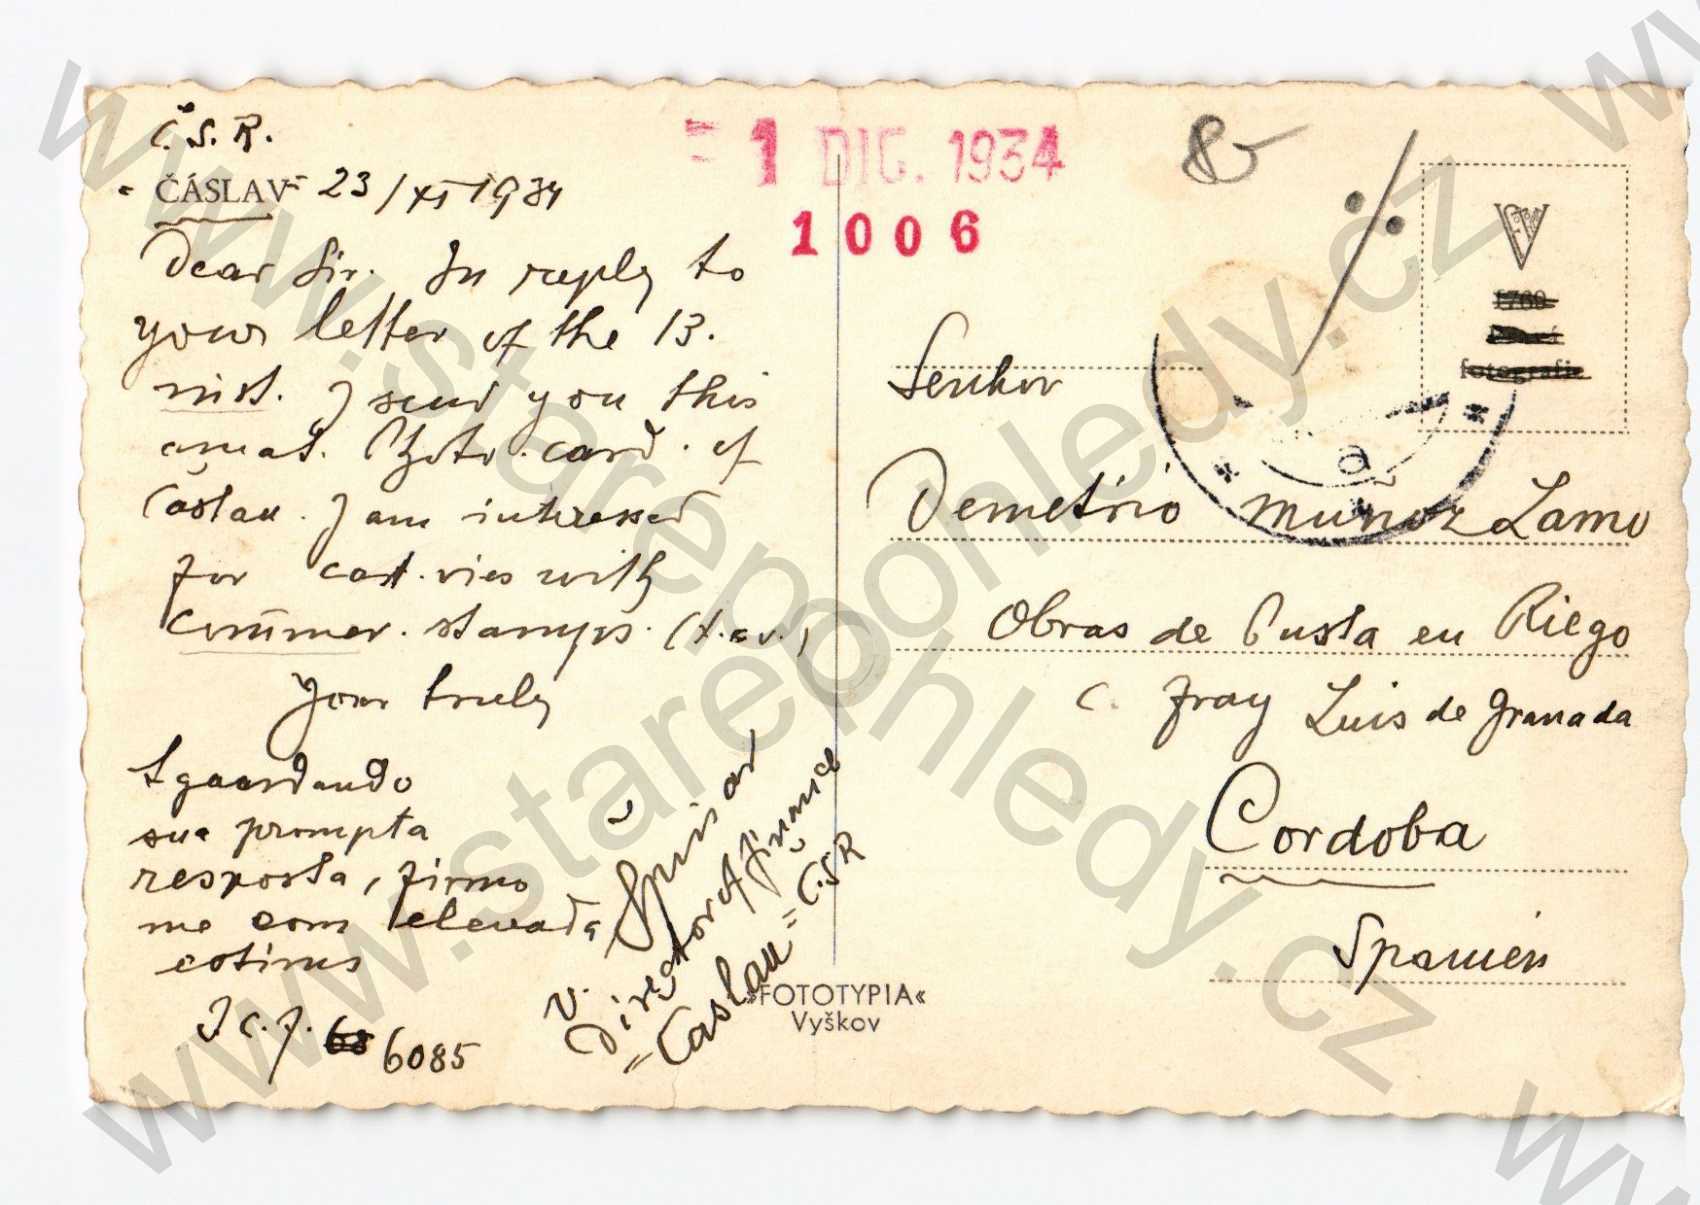 Č.S.R.
ČÁSLAV - 23/XI 1934
Dear Sir. In reply to
your letter of the 13.
inst. I send you this
amat. Photo.card. of
Čáslav. I am interessed
for cart.vies with
commer. stamps. (t.c.v.)
Your truly
sua prompta
resposta, firmo
me com elevada
estima
J.C.F. 6085
v. Špinar
Director of finance
= Čáslav = ČSR
»FOTOTYPIA«
Vyškov
= 1 DIC. 1934
1006
8
1769
fotografie
Senhor
Demetrio Muñoz Lamo
Obras de Pusta en Riego
C. Fray Luis de Granada
Cordoba
Spanien
www.starepohledy.cz
www.starepohledy.cz